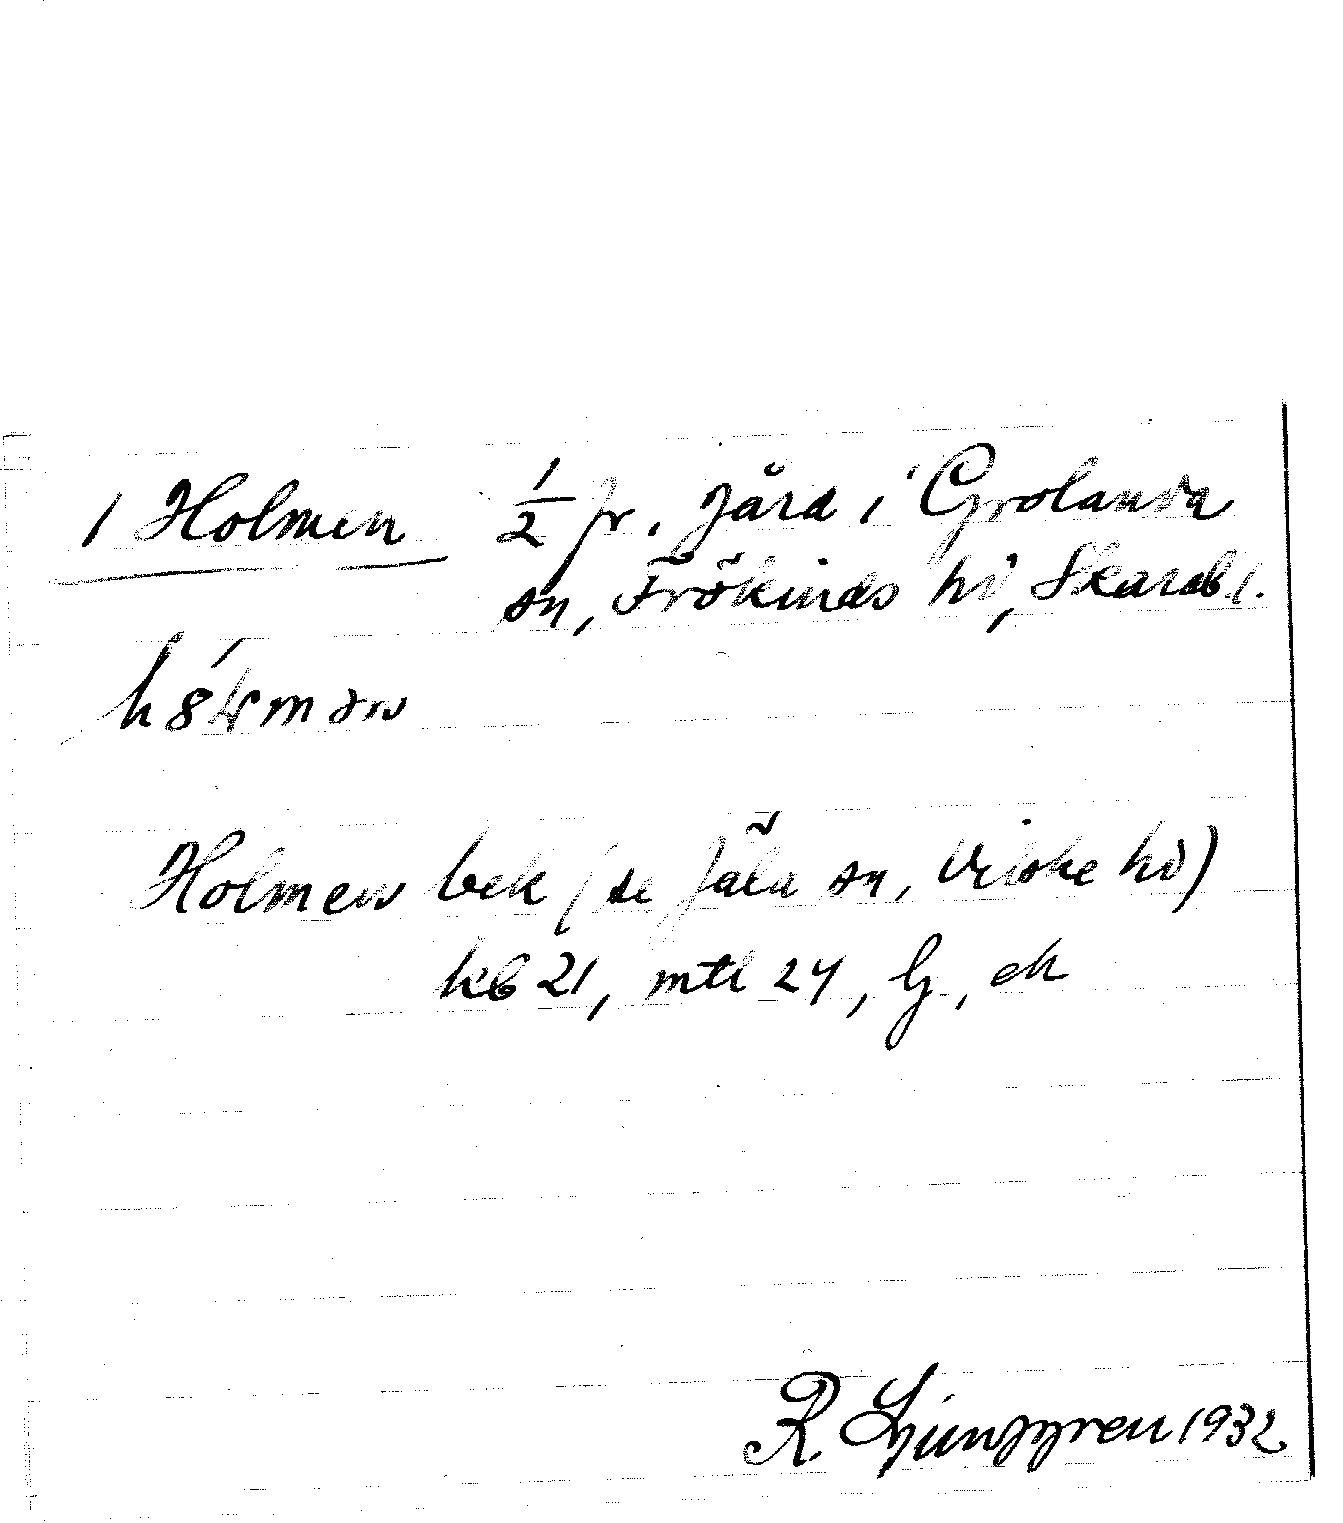 1 Holmen 1/2 fr. gård i Grolanda
sn, Frökinds hd, Skarab l.
Holmen bek (se Jäla sn, Vilske hd)
kb 21, mtl 24, lj, ek
R. Ljunggren 1932